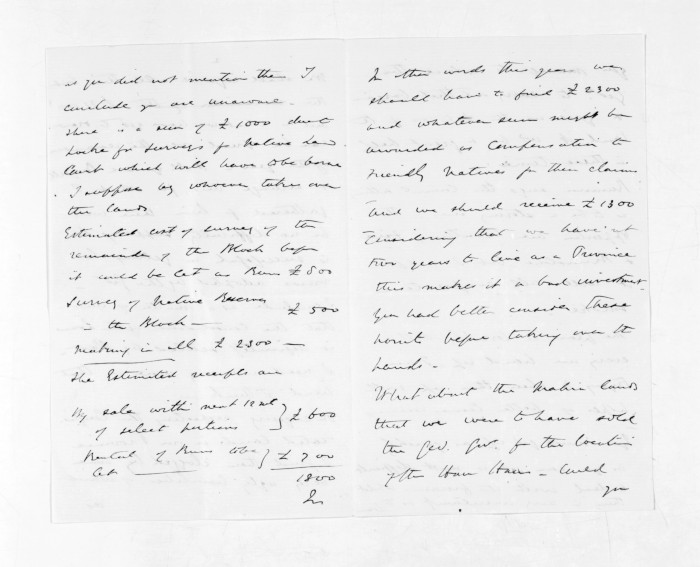 as you did not mention them I
conclude you are unaware.
There is a sum of £1000 due to
Locke for surveys for Native Land
Court which will have to be borne
I suppose by whoever takes over
the lands
Estimated cost of survey of the
remainder of the Block before
it could be let as Runs £800
Survey of Native Reserves
in the Block — £500
Making in all £2300 —
The Estimated receipts are
By sale within next 12
of select portions } £600
Rental of Runs to be
let } £700
1300
In
In other words this year we
should have to find £2300
and whatever sum might be
awarded as Compensation to
Friendly Natives for their claims
and we should receive £1300
Considering that we have
two years to live as a Province
this makes it a bad investment.
You had better consider these
points before taking over the
lands —
What about the Mahia lands
that we were to have sold
the Gen. Govt. for the location
of the Hau Haus — Could
you